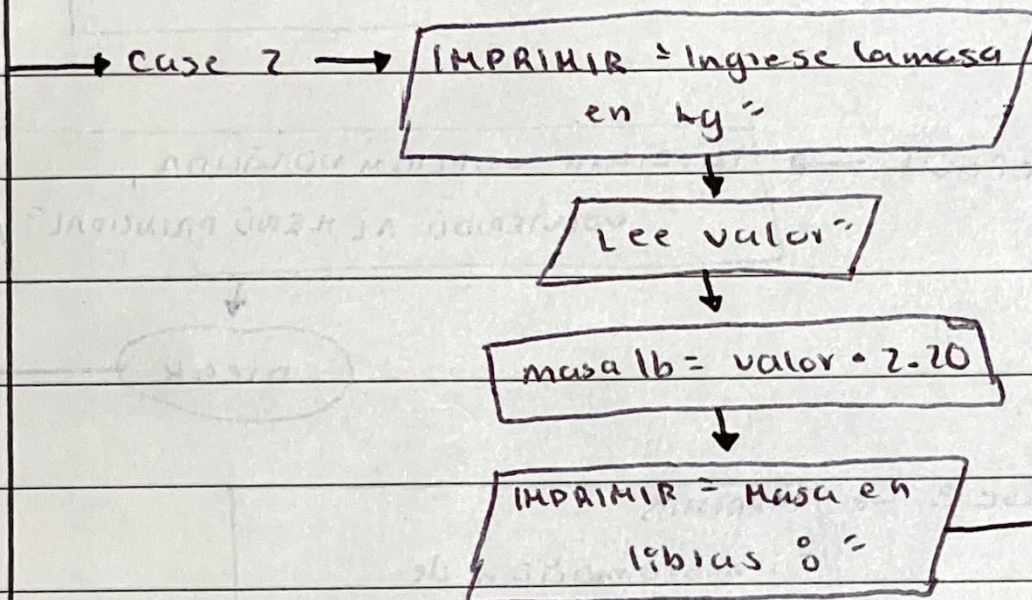 case 2
IMPRIMIR "Ingrese la masa
en kg"
Lee valor"
masa lb = valor * 2.20
IMPRIMIR " Masa en
libras : "